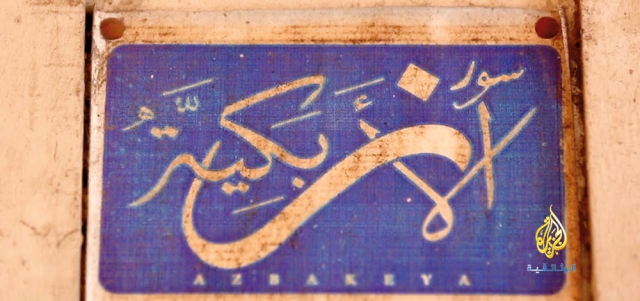 سور
الأزبكية
AZBAKEYA
الجزيرة
الوثائقية